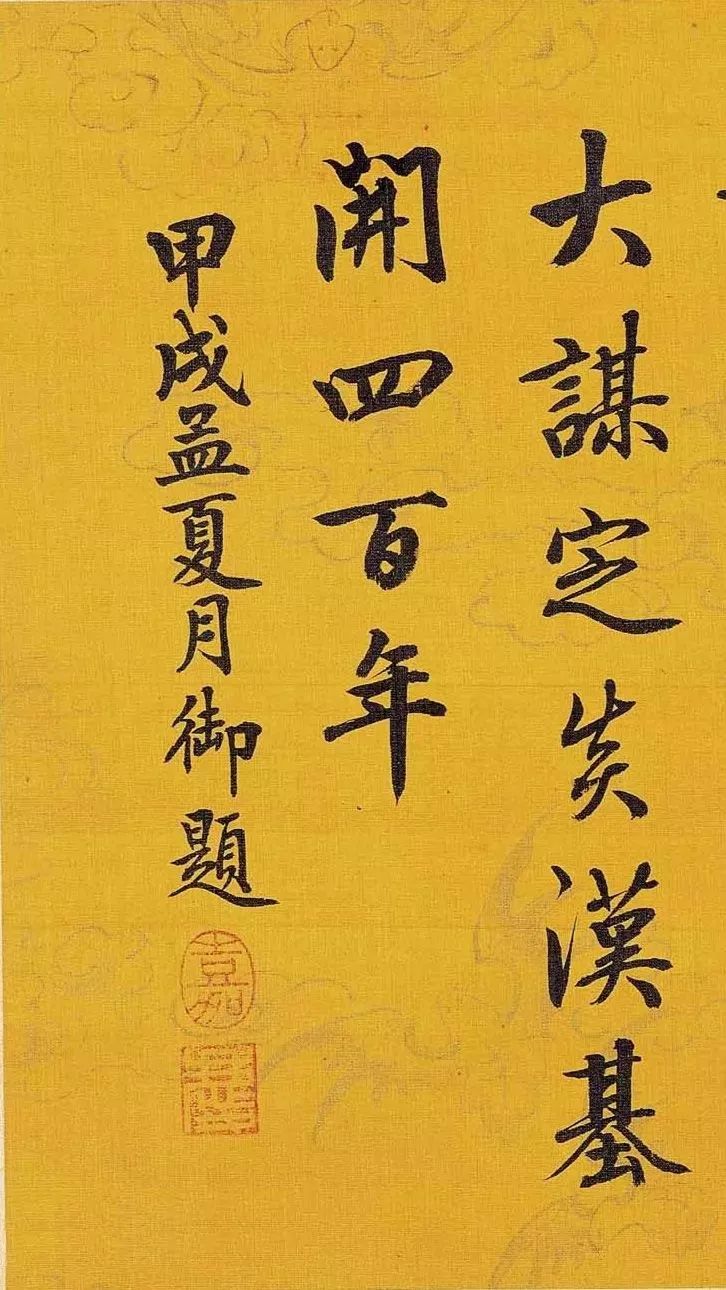 大謀定矣漢基
開四百年
甲戌孟夏月御題
嘉